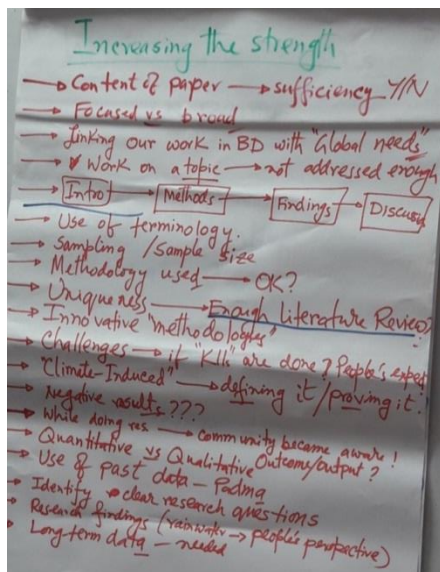 Increasing the strength
→ Content of paper → sufficiency Y/N
→ Focused vs broad
→ Linking our work in BD with "Global needs"
→ Work on a topic → not addressed enough
→ Intro → Methods → Findings → Discuss
→ Use of terminology.
→ Sampling / Sample size
→ Methodology used → OK?
→ Uniqueness → Enough Literature Review?
→ Innovative "methodologies"
→ Challenges → if "KIIs" are done? People's
→ "Climate-Induced" → defining it / proving it!
→ Negative results ???
→ While doing res. → community became aware!
→ Quantitative vs Qualitative Outcome/output?
→ Use of past data - Padma
→ Identify clear research questions
→ Research findings (rainwater → people's perspective)
→ Long-term data - needed